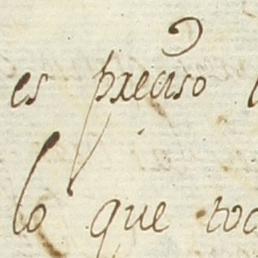 es preciso
lo que toc